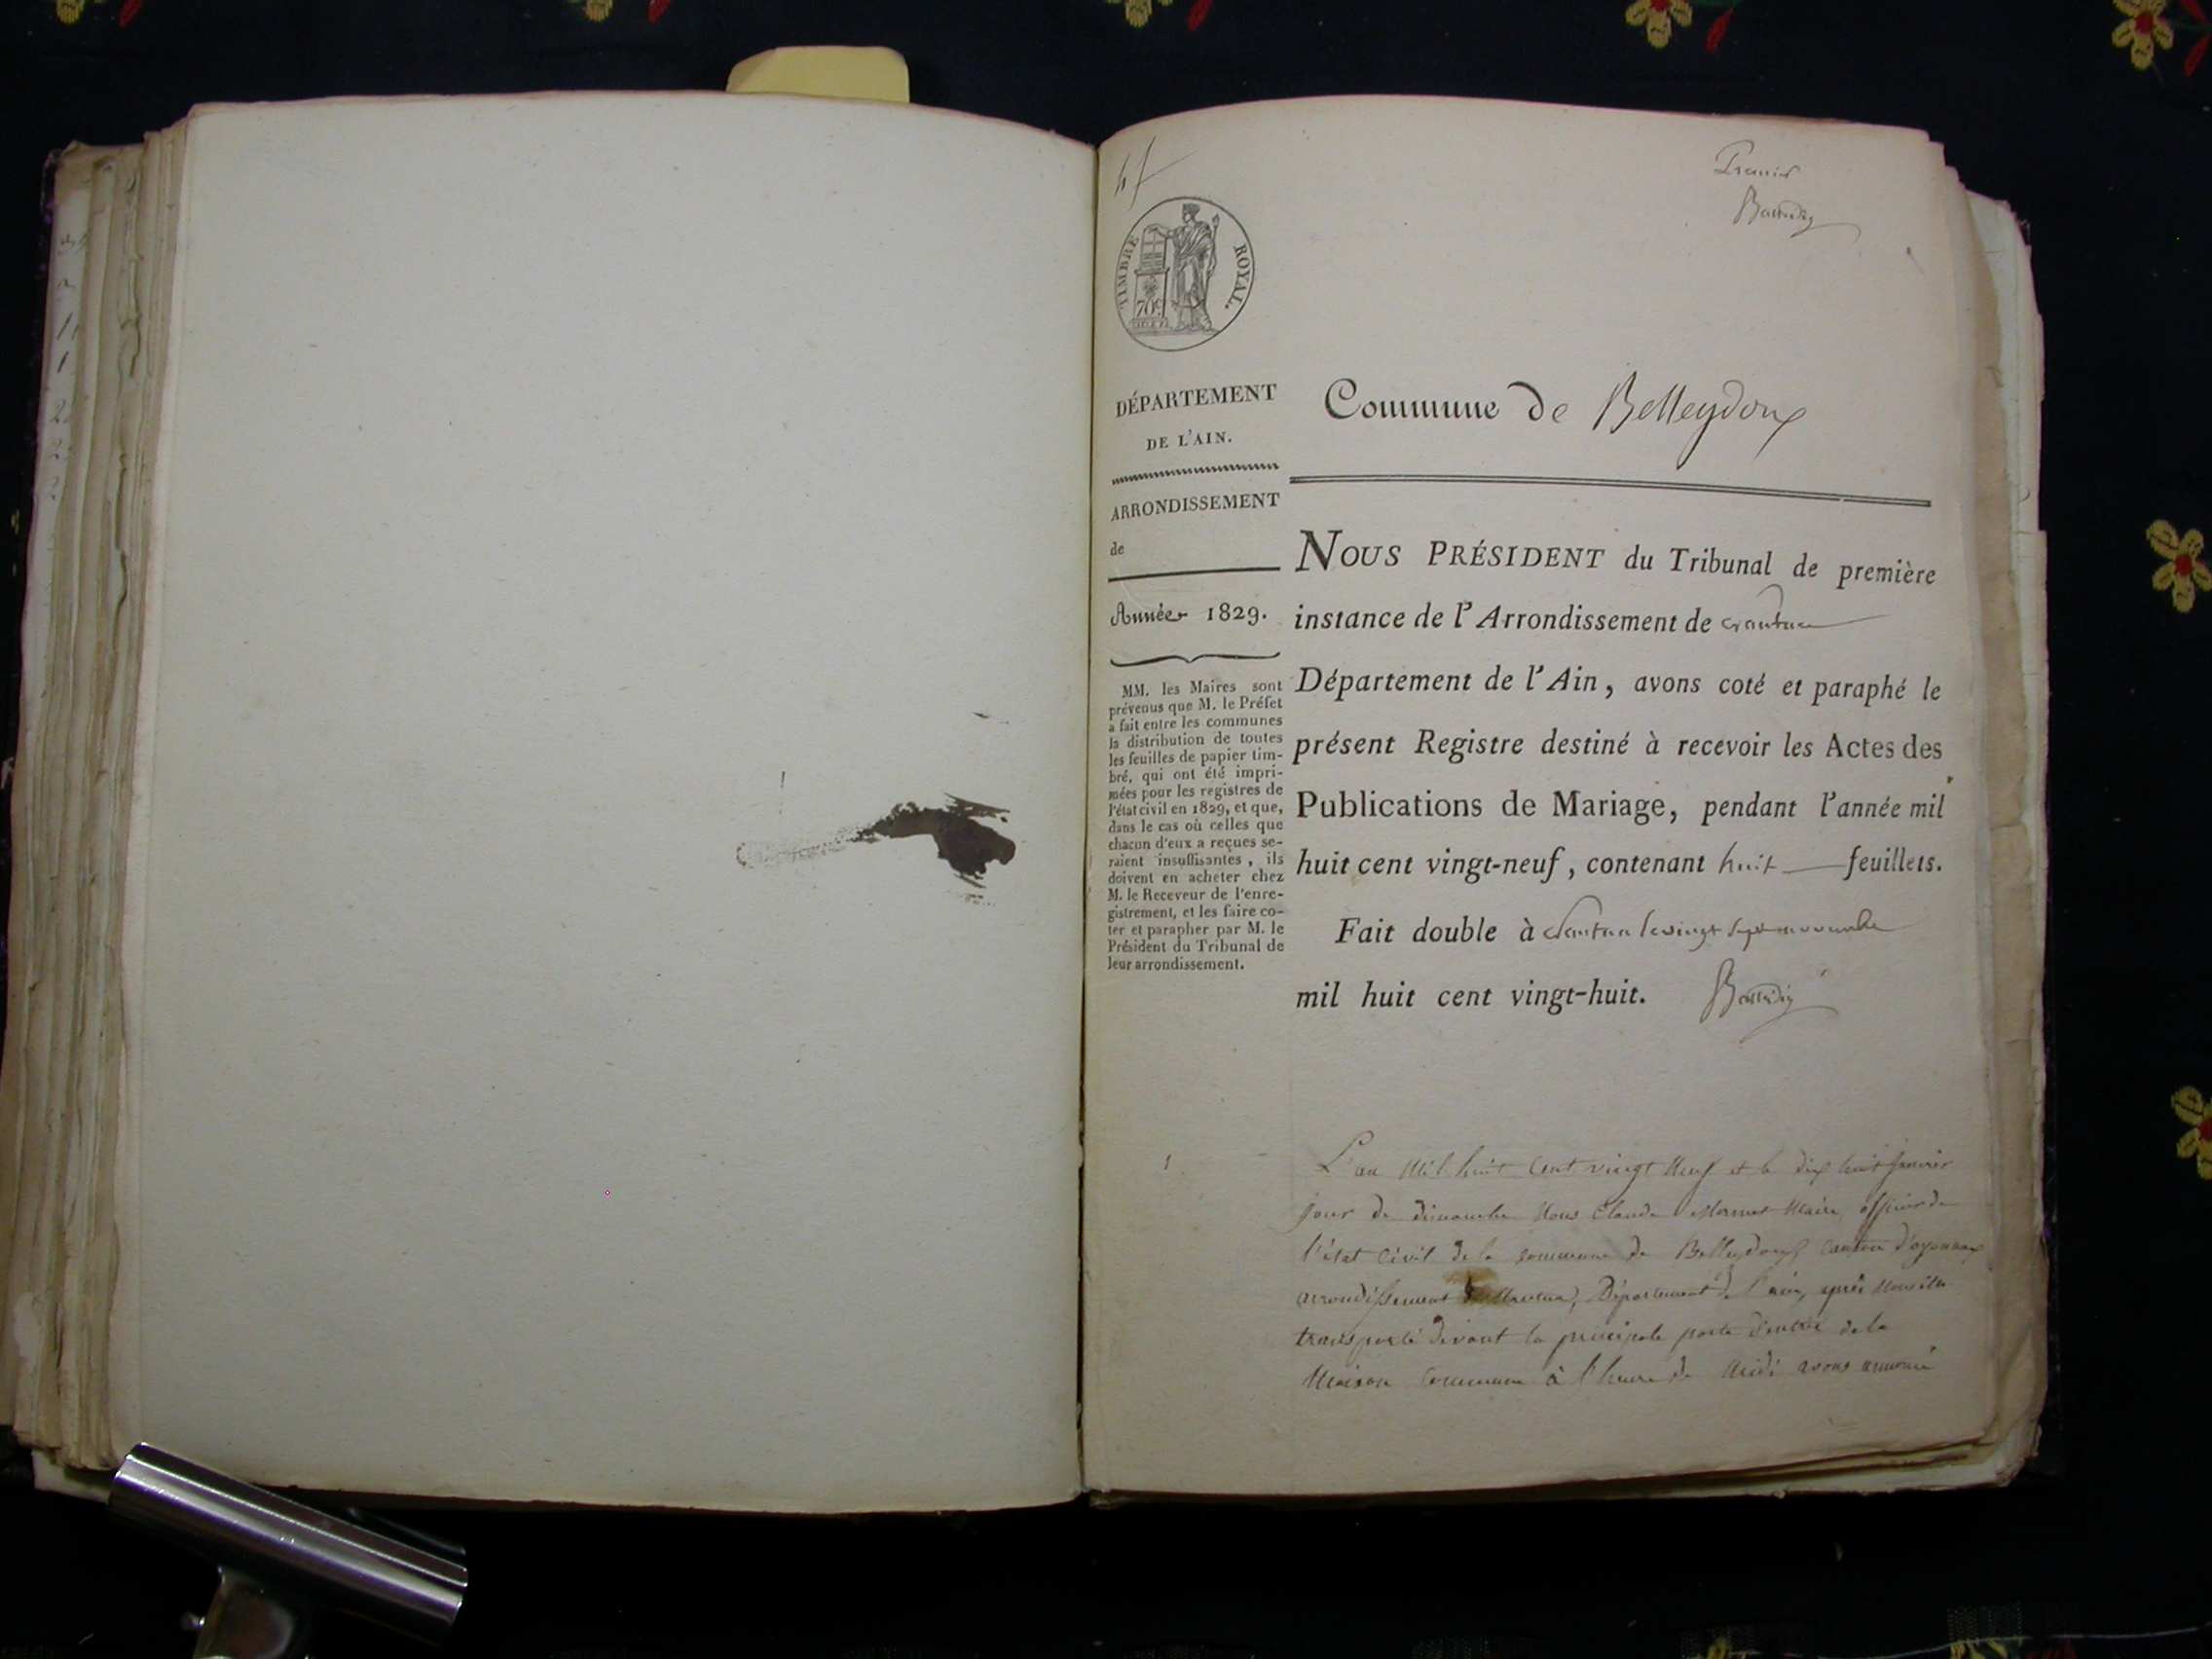 Premier
TIMBRE ROYAL.
70c
DÉPARTEMENT
DE L'AIN.
ARRONDISSEMENT
de
Année 1829.
MM. les Maires sont
prévenus que M. le Préfet
a fait entre les communes
la distribution de toutes
les feuilles de papier tim-
bré, qui ont été impri-
mées pour les registres de
l'état civil en 1829, et que,
dans le cas où celles que
chacun d'eux a reçues se-
raient insuffisantes, ils
doivent en acheter chez
M. le Receveur de l'enre-
gistrement, et les faire co-
ter et parapher par M. le
Président du Tribunal de
leur arrondissement.
Commune de Belleydoux
NOUS PRÉSIDENT du Tribunal de première
instance de l'Arrondissement de nantua
Département de l'Ain, avons coté et paraphé le
présent Registre destiné à recevoir les Actes des
Publications de Mariage, pendant l'année mil
huit cent vingt-neuf, contenant huit feuillets.
Fait double à nantua le vingt sept novembre
mil huit cent vingt-huit.
1
L'an Mil huit Cent vingt Neuf et le dix huit Janvier
jour de dimanche Nous Claude Mermet Maire officier de
l'état Civil de la commune de Belleydoux Canton d'oyonnax
arrondissement de Nantua, Département de l'ain, après Nous être
transporté devant la principale porte d'entrée de la
Maison Commune à l'heure de Midi avons annoncé